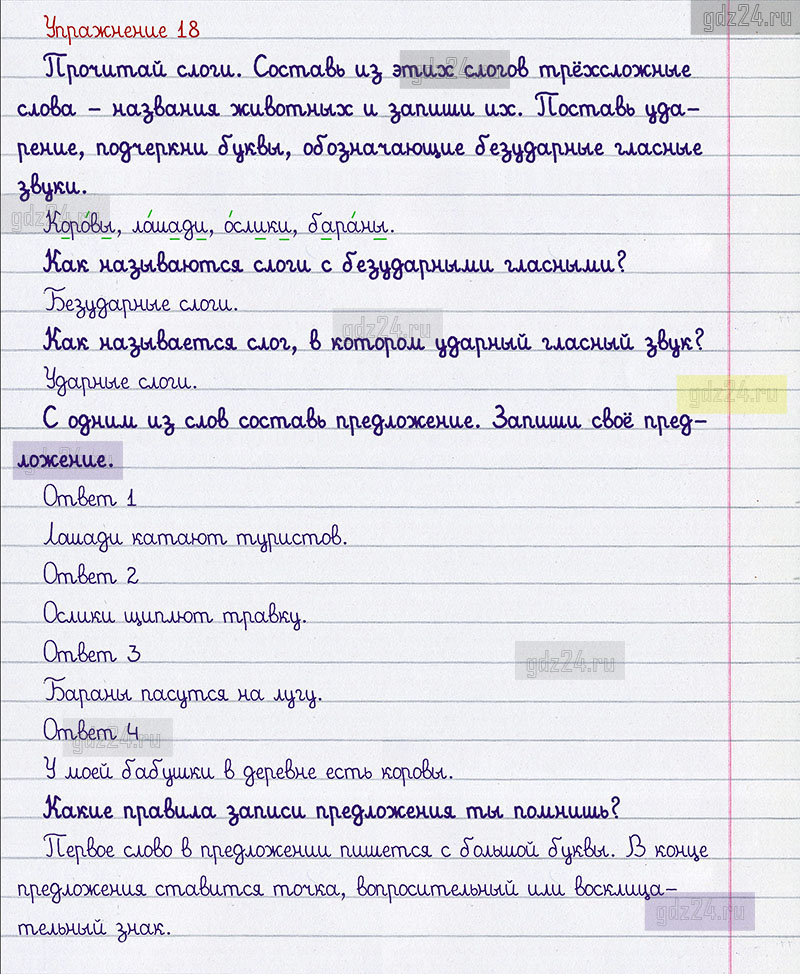 gdz24.ru
Упражнение 18
Прочитай слоги. Составь из этих слогов трёхсложные
gdz24.ru
слова – названия животных и запиши их. Поставь уда-
рение, подчеркни буквы, обозначающие безударные гласные
звуки.
gdz24.ru
Коро́вы, ло́шади, о́слики, бара́ны.
Как называются слоги с безударными гласными?
Безударные слоги.
gdz24.ru
Как называется слог, в котором ударный гласный звук?
Ударные слоги.
gdz24.ru
С одним из слов составь предложение. Запиши своё пред-
ложение.
gdz24.ru
Ответ 1
Лошади катают туристов.
Ответ 2
Ослики щиплют травку.
Ответ 3
gdz24.ru
Бараны пасутся на лугу.
Ответ 4
gdz24.ru
У моей бабушки в деревне есть коровы.
Какие правила записи предложения ты помнишь?
Первое слово в предложении пишется с большой буквы. В конце
предложения ставится точка, вопросительный или восклица-
gdz24.ru
тельный знак.